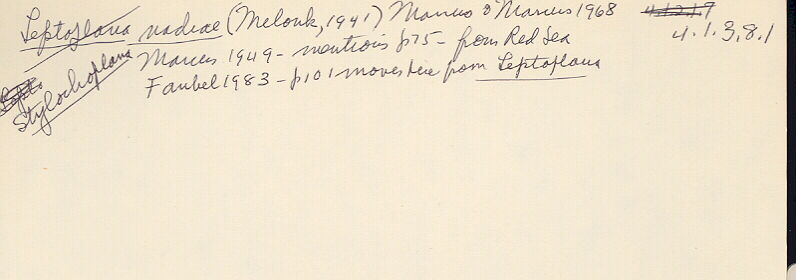 Leptoplana nadiae (Melouk, 1941) Marcus & Marcus 1968 4.1.2.1.9
4.1.3.8.1
Marcus 1949 - mentions p75 - from Red Sea
Faubel 1983 - p101 moves here from Leptoplana
Lepto
Stylochoplana